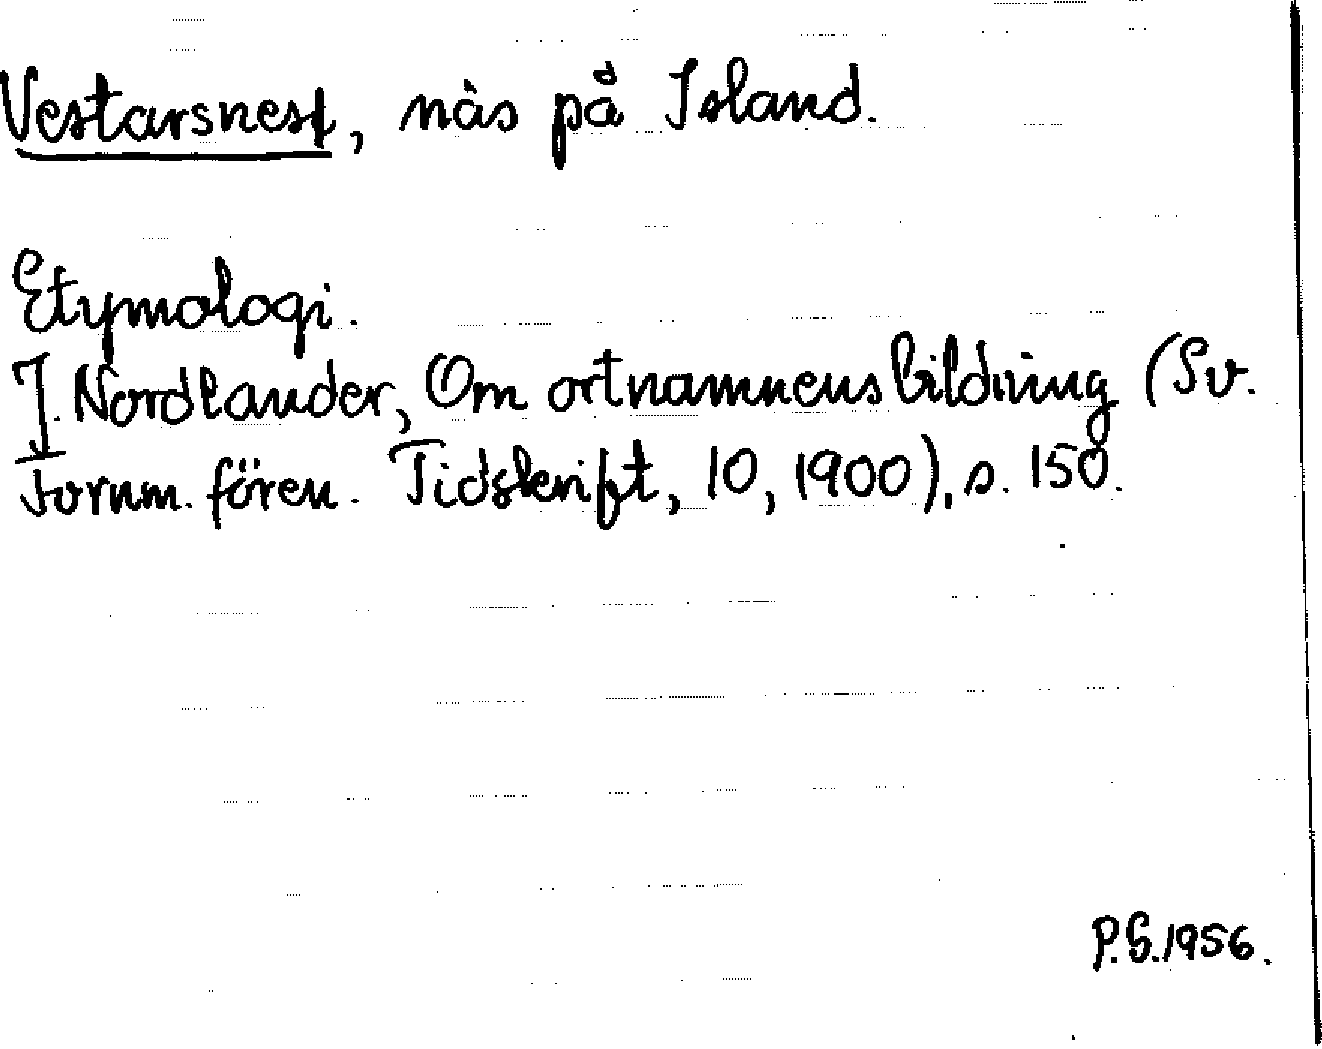 Vestarsnest, näs på Island.
Etymologi.
J. Nordlander, Om ortnamnens bildning (Sv.
fornm. fören. Tidskrift, 10, 1900), s. 150.
P.G. 1956.